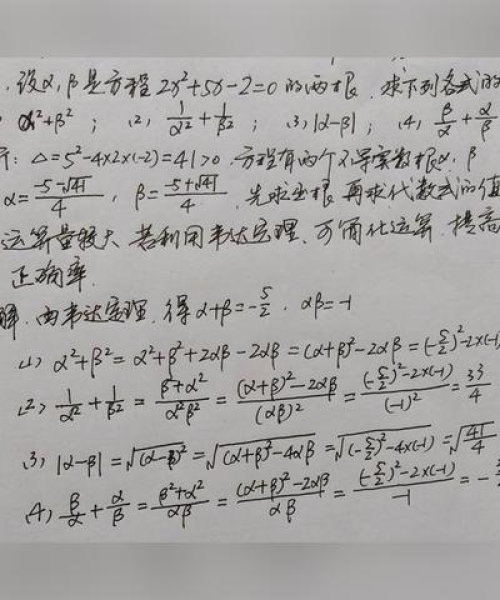 .设α,β是方程 2x²+5x-2=0 的两根. 求下列各式的
α²+β² ; (2) 1/α²+1/β² ; (3) |α-β| ; (4) β/α+α/β
: Δ=5²-4×2×(-2)=41>0. 方程有两个不等实数根α,β
α=(-5-√41)/4 , β=(-5+√41)/4 . 先求出根,再求代数式的值
运算量较大. 若利用韦达定理,可简化运算.提高
正确率.
解.由韦达定理.得α+β=-5/2 , αβ=-1
(1) α²+β²=α²+β²+2αβ-2αβ=(α+β)²-2αβ=(-5/2)²-2×(-1)
(2) 1/α²+1/β²=(β²+α²)/(α²β²)=((α+β)²-2αβ)/(αβ)²=((-5/2)²-2×(-1))/(-1)²=33/4
(3) |α-β|=√(α-β)²=√((α+β)²-4αβ)=√((-5/2)²-4×(-1))=√(41/4)
(4) β/α+α/β=(β²+α²)/(αβ)=((α+β)²-2αβ)/(αβ)=((-5/2)²-2×(-1))/(-1)=-